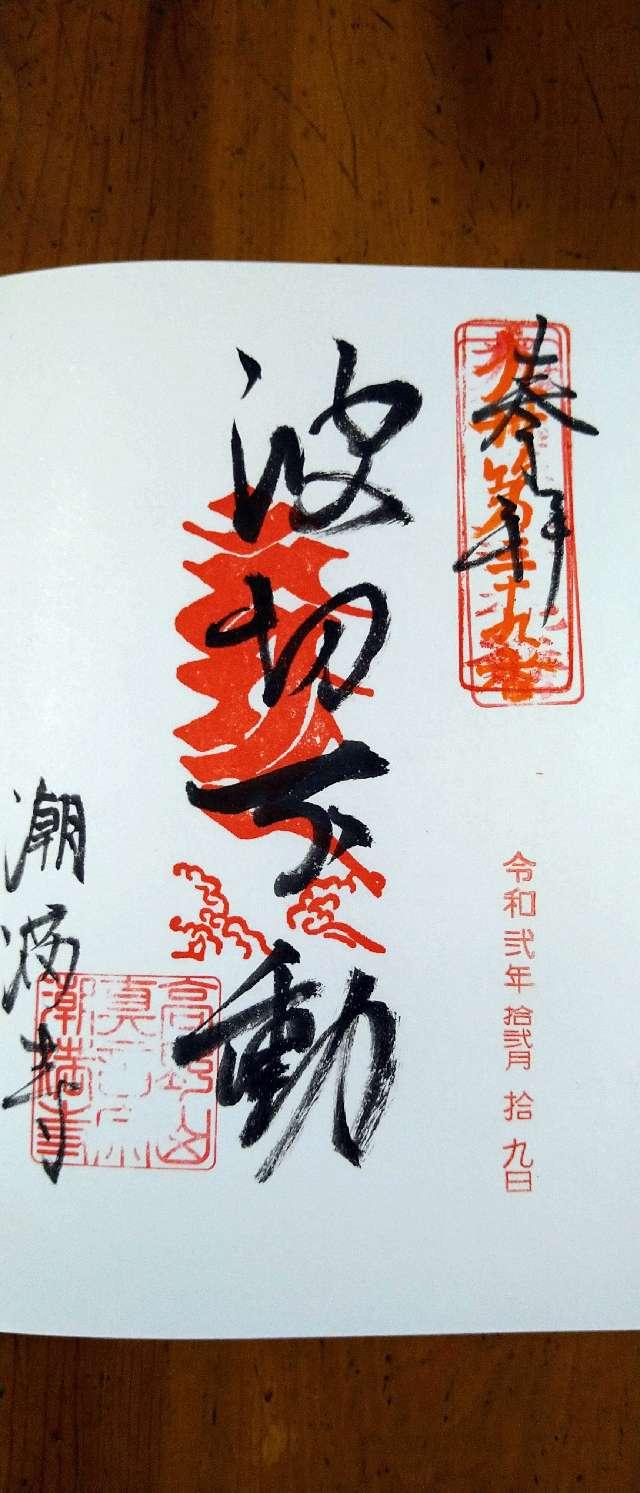 奉拝
第三十九番
令和弐年拾弐月拾九日
波切不動
潮満寺
高野山
真言宗
潮満寺